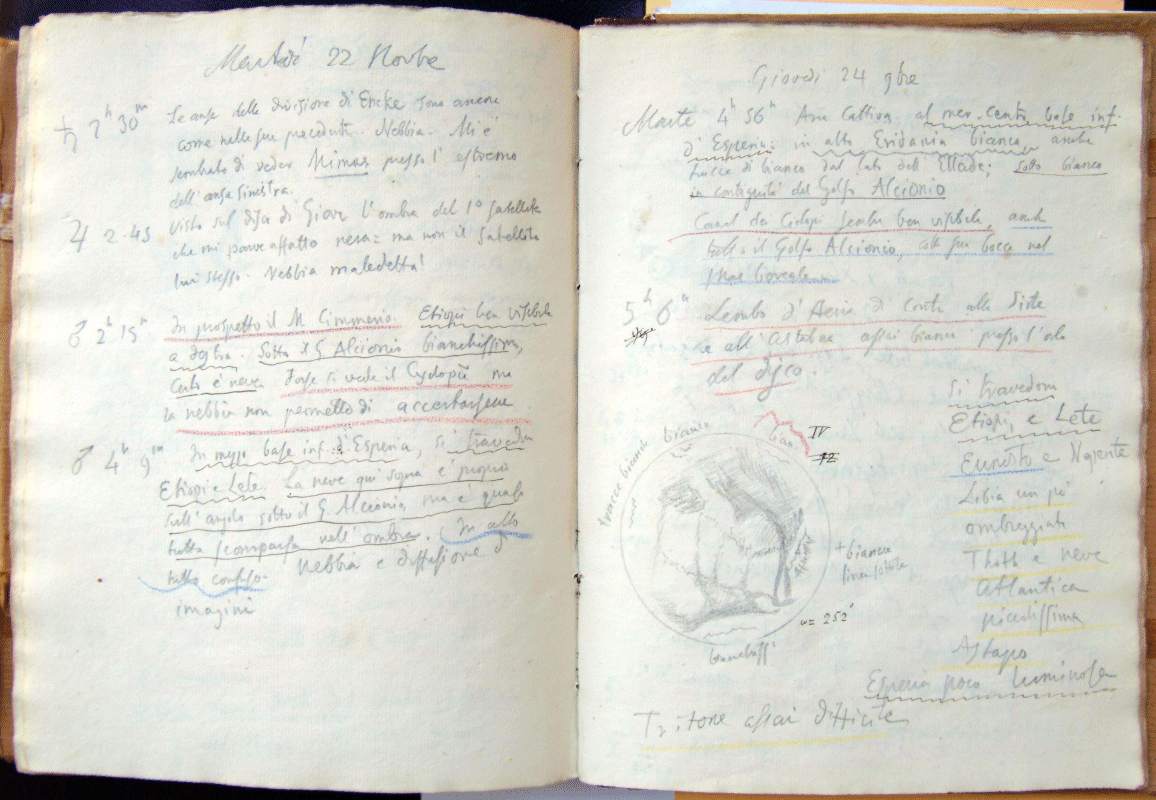 Martedì 22 Novbre
♄ 2h 30m Le anse della divisione di Encke sono ancora
come nelle sere precedenti. Nebbia. Mi è
sembrato di veder Mimas presso l'estremo
dell'ansa sinistra.
♃ 2-45 Visto sul disco di Giove l'ombra del 1° satellite
che mi parve affatto nera: ma non il satellite
lui stesso. Nebbia maledetta!
♂ 2h 15m In prospetto il M. Cimmerio. Etiopi ben visibile
a destra. Sotto il G. Alcionio bianchissimo,
certo è neve. Forse si vede il Cyclopum ma
la nebbia non permette di accertarsene
♂ 4h 9m In mezzo base inf. d'Esperia, si travedon
Etiopi e Lete. La neve qui sopra è proprio
sull'angolo sotto il G. Alcionio, ma è quasi
tutta scomparsa nell'ombra. In alto
tutto confuso. Nebbia e diffusione d'
imagini
Giovedì 24 9bre
Marte 4h 56m Aria cattiva, al mer. centr. base inf.
d'Esperia: in alto Eridania bianca, anche
tracce di bianco dal lato dell'Ellade; sotto bianco
in contiguità del Golfo Alcionio
Canal dei Ciclopi sembra ben visibile, anche
tutto il Golfo Alcionio, colla sua bocca nel
mar boreale
5h 6m Lembo d'Aeria di contro alla Sirte
e all'Astabora assai bianco presso l'orlo
del disco.
Si travedon
Etiopi, e Lete
Eunosto e Nepente
Libia un pò
ombreggiata
Thoth e neve
Atlantica
piccolissima
Astapo
Esperia poco luminosa
Tritone assai difficile
tracce bianche
bianca
bian
IV
+ bianca
linea sottile
ω = 252°
bianchiss